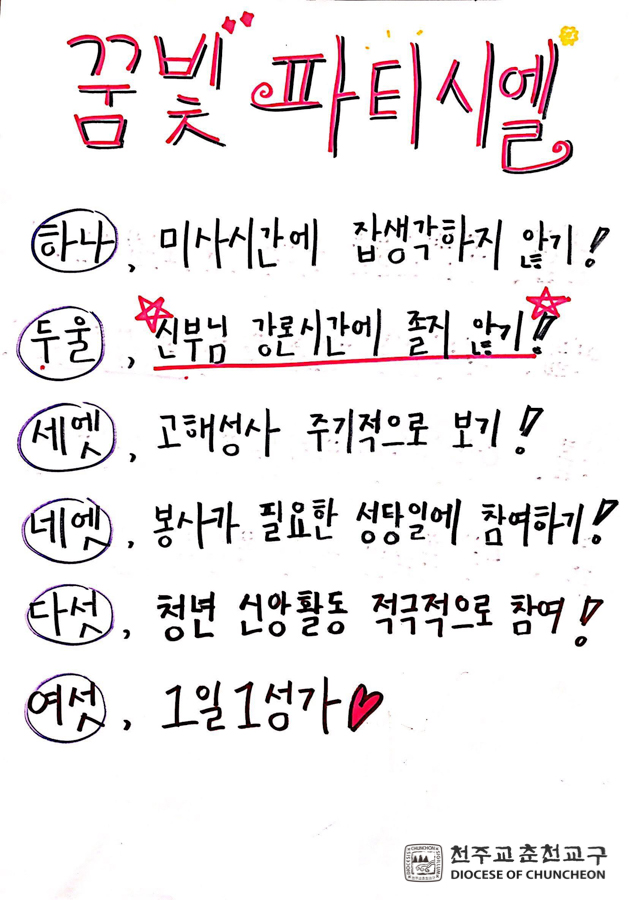 꿈빛 파티시엘
하나, 미사시간에 잡생각하지 않기!
두울, 신부님 강론시간에 졸지 않기!
세엣, 고해성사 주기적으로 보기!
네엣, 봉사가 필요한 성당일에 참여하기!
다섯, 청년 신앙활동 적극적으로 참여!
여섯, 1일 1성가
천주교 춘천교구
DIOCESE OF CHUNCHEON